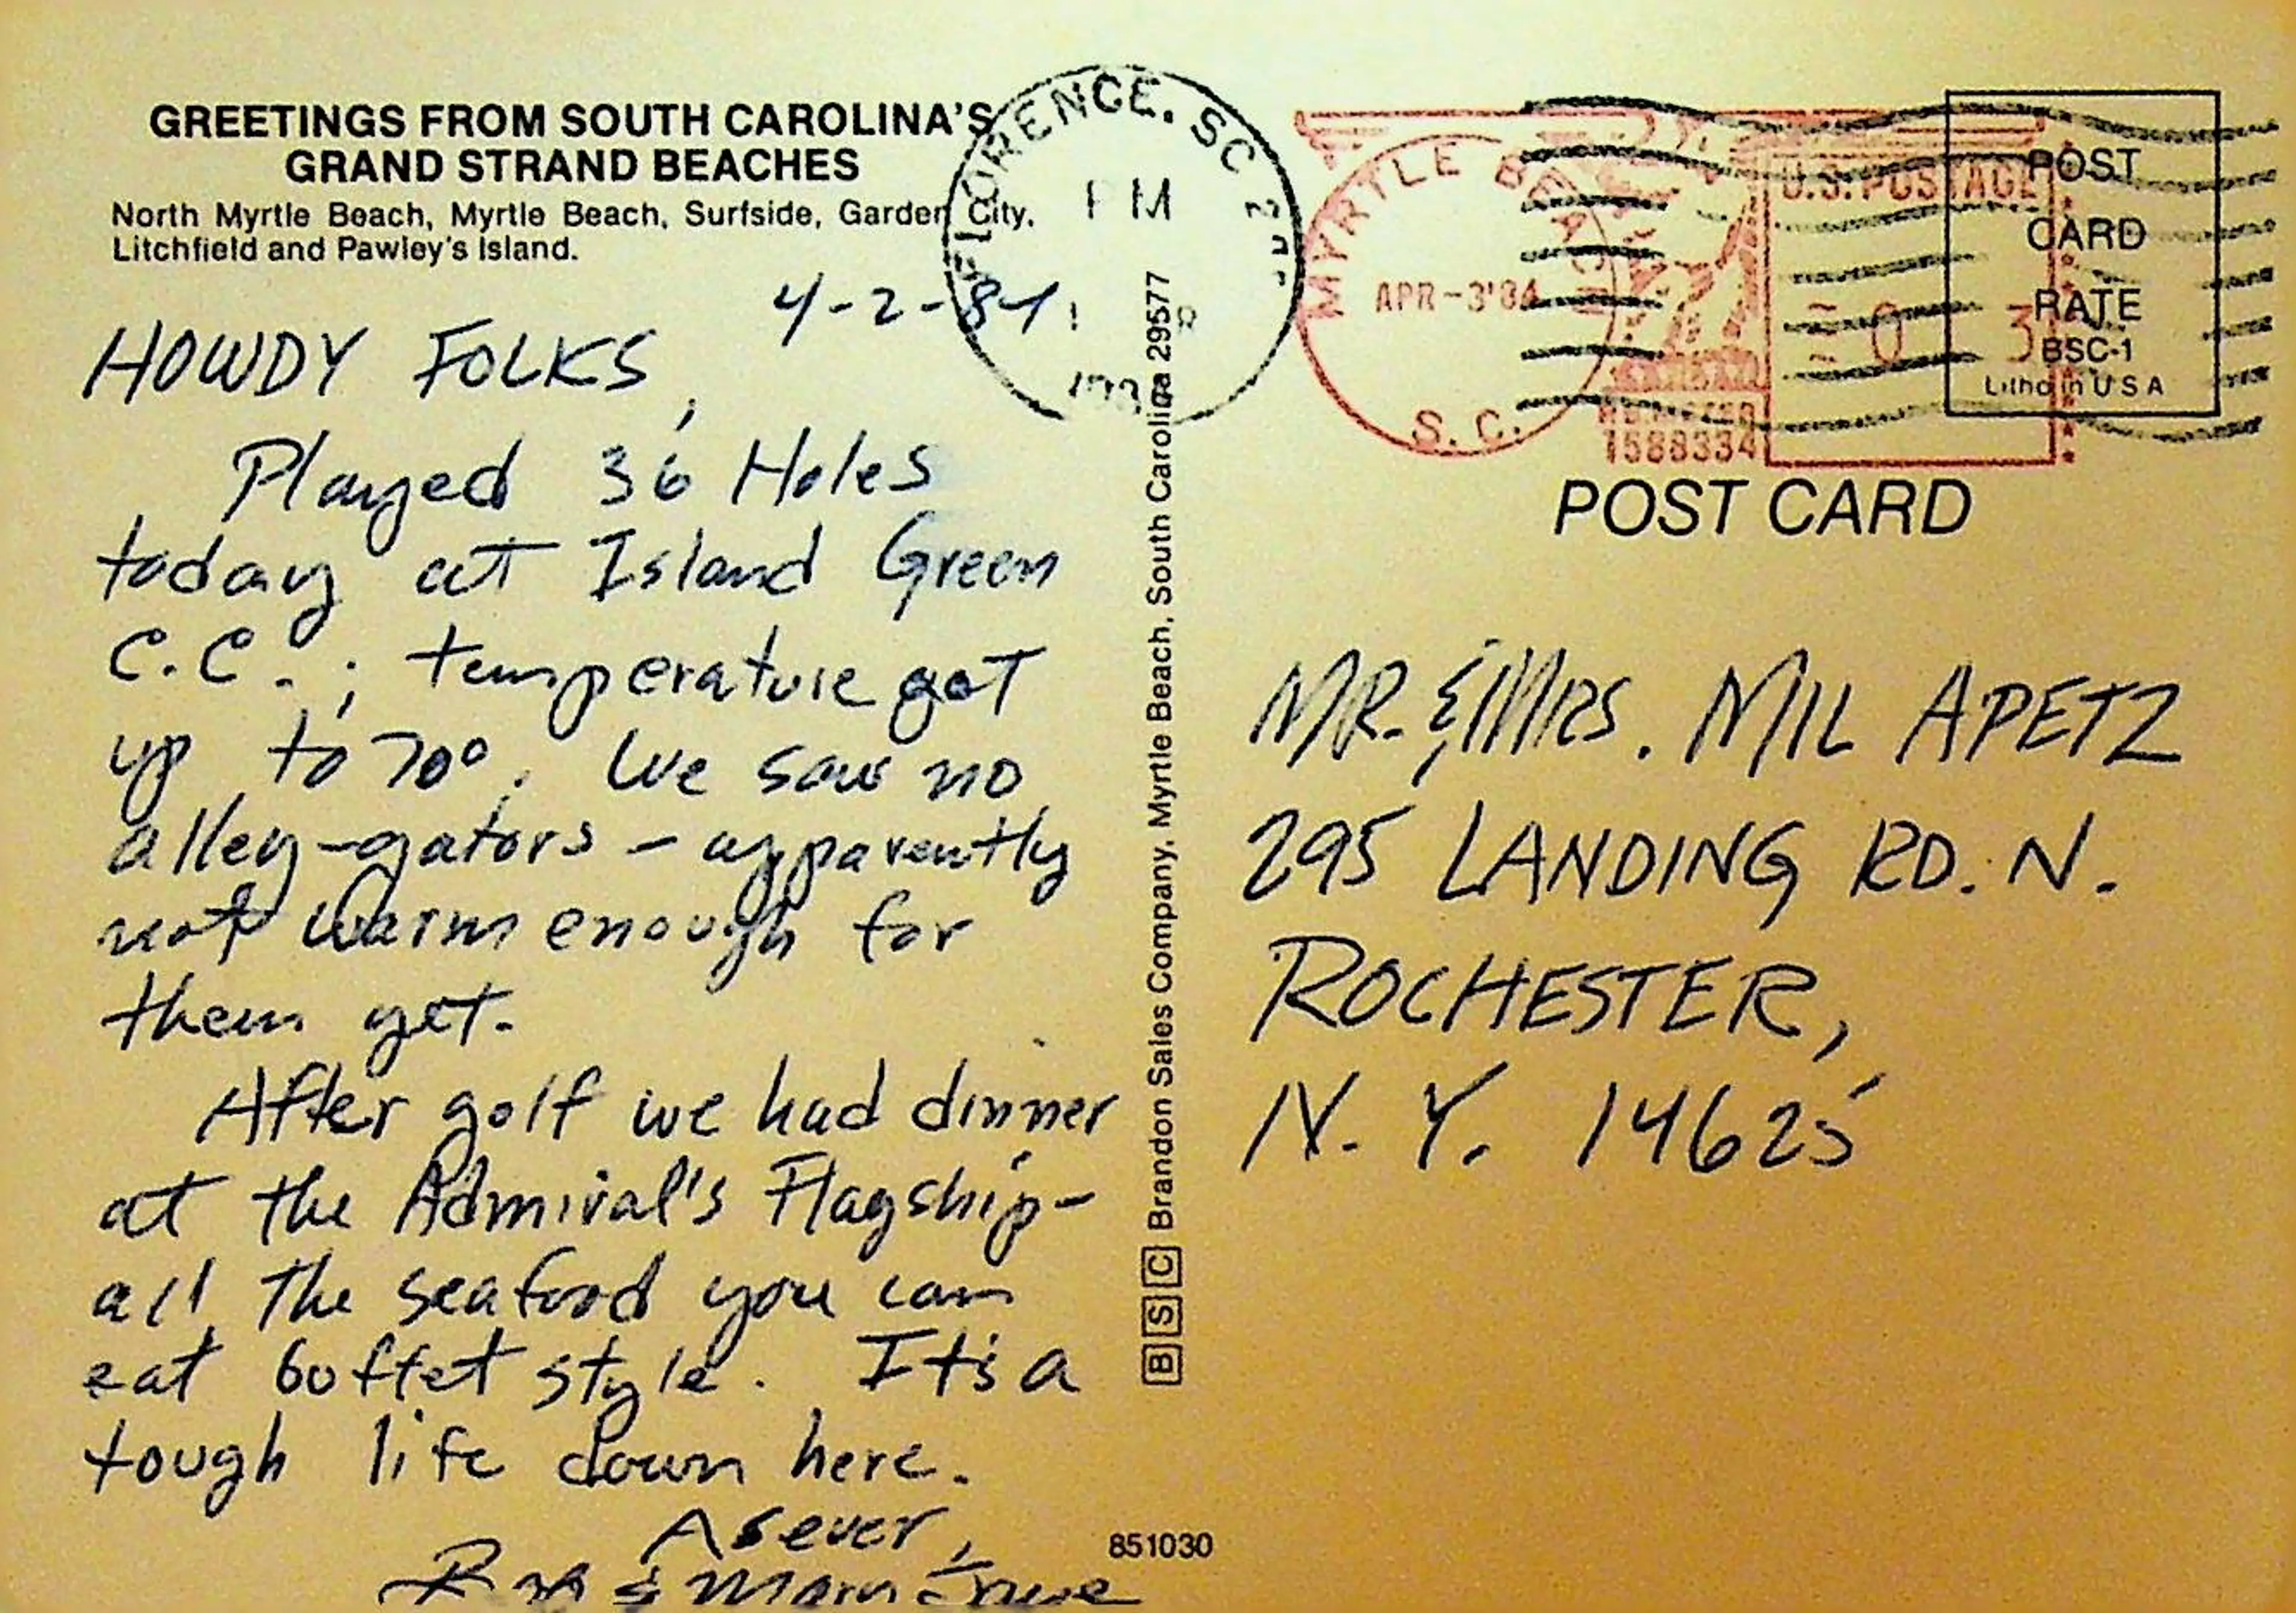 GREETINGS FROM SOUTH CAROLINA'S
GRAND STRAND BEACHES
North Myrtle Beach, Myrtle Beach, Surfside, Garden City,
Litchfield and Pawley's Island.
4-2-84
HOWDY FOLKS,
Played 36 Holes
today at Island Green
C.C.; temperature got
up to 70°. We saw no
alley-gators - apparently
not warm enough for
them yet.
After golf we had dinner
at the Admiral's Flagship-
all the seafood you can
eat buffet style. It's a
tough life down here.
As ever,
& Mary
851030
B S C Brandon Sales Company, Myrtle Beach, South Carolina 29577
FLORENCE, SC
PM
MYRTLE BEACH
APR-3'84
S.C.
U.S. POSTAGE
1588334
POST
CARD
RATE
BSC-1
Litho in U S A
POST CARD
MR. & MRS. MIL APETZ
295 LANDING RD. N.
ROCHESTER,
N.Y. 14625